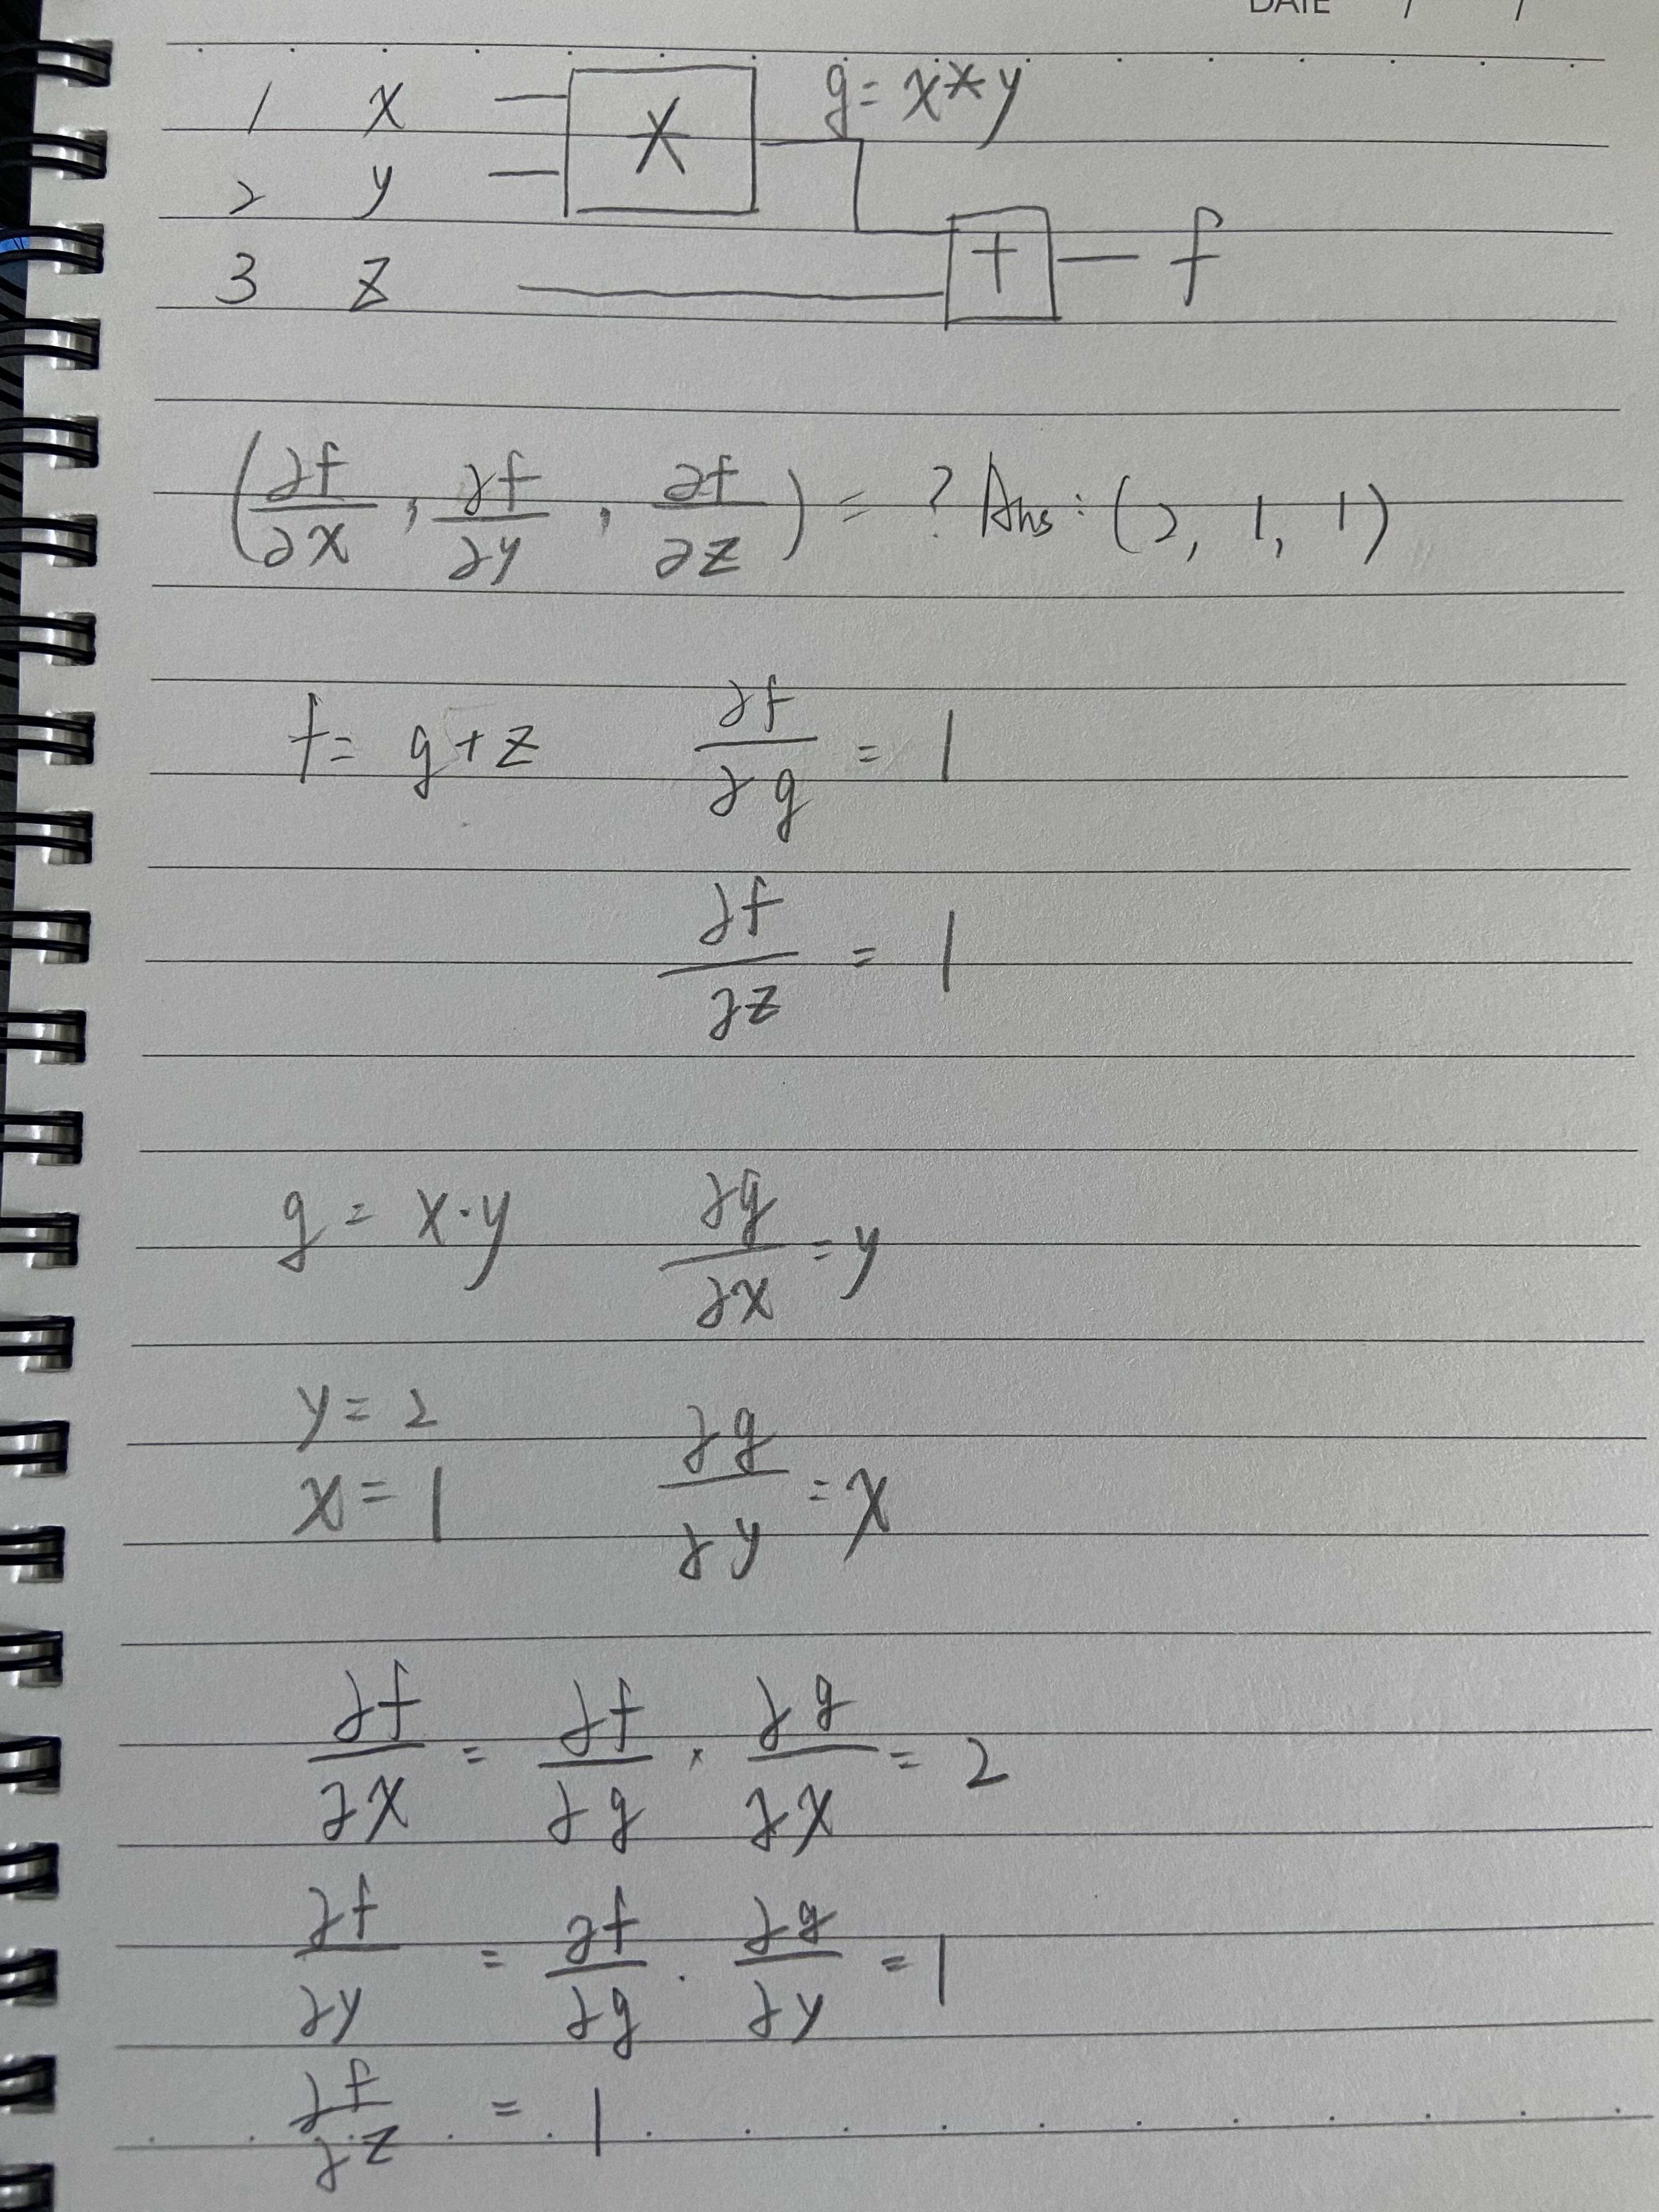 DATE / /
1 x g = x*y
X
2 y
3 z + f
(∂f/∂x, ∂f/∂y, ∂f/∂z) = ? Ans: (2, 1, 1)
f = g + z ∂f/∂g = 1
∂f/∂z = 1
g = x·y ∂g/∂x = y
y = 2
x = 1 ∂g/∂y = x
∂f/∂x = ∂f/∂g · ∂g/∂x = 2
∂f/∂y = ∂f/∂g · ∂g/∂y = 1
∂f/∂z = 1